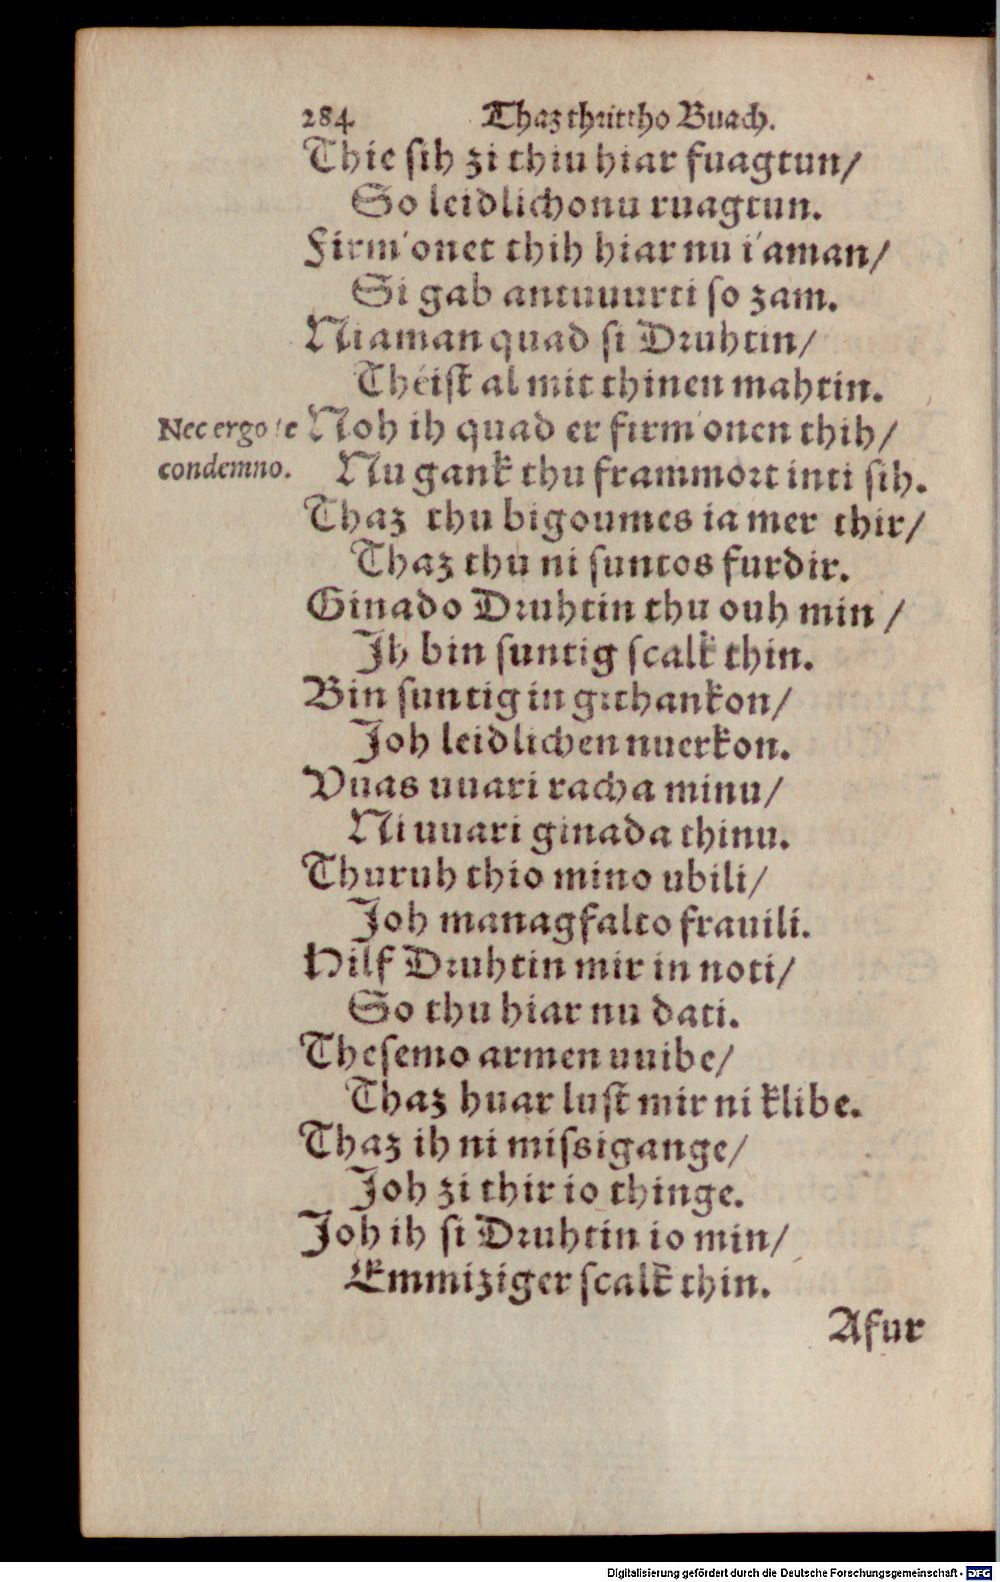 284 Thaz thrittho Buach.
Thie sih zi thiu hiar fuagtun/
So leidlichonu ruagtun.
Firm'onet thih hiar nu i'aman/
Si gab antuuurti so zam.
Niaman quad si Druhtin/
Théist al mit thinen mahtin.
Nec ergo te Noh ih quad er firm'onen thih/
condemno. Nu gank thu frammort inti sih.
Thaz thu bigoumes ia mer thir/
Thaz thu ni suntos furdir.
Ginado Druhtin thu ouh min /
Ih bin suntig scalk thin.
Bin suntig in githankon/
Joh leidlichen nuerkon.
Vuas uuari racha minu/
Ni uuari ginada thinu.
Thuruh thio mino ubili/
Joh managfalto frauili.
Hilf Druhtin mir in noti/
So thu hiar nu dati.
Thesemo armen uuibe/
Thaz huar lust mir ni klibe.
Thaz ih ni missigange/
Joh zi thir io thinge.
Joh ih si Druhtin io min/
Emmiziger scalk thin.
Afur
Digitalisierung gefördert durch die Deutsche Forschungsgemeinschaft - DFG